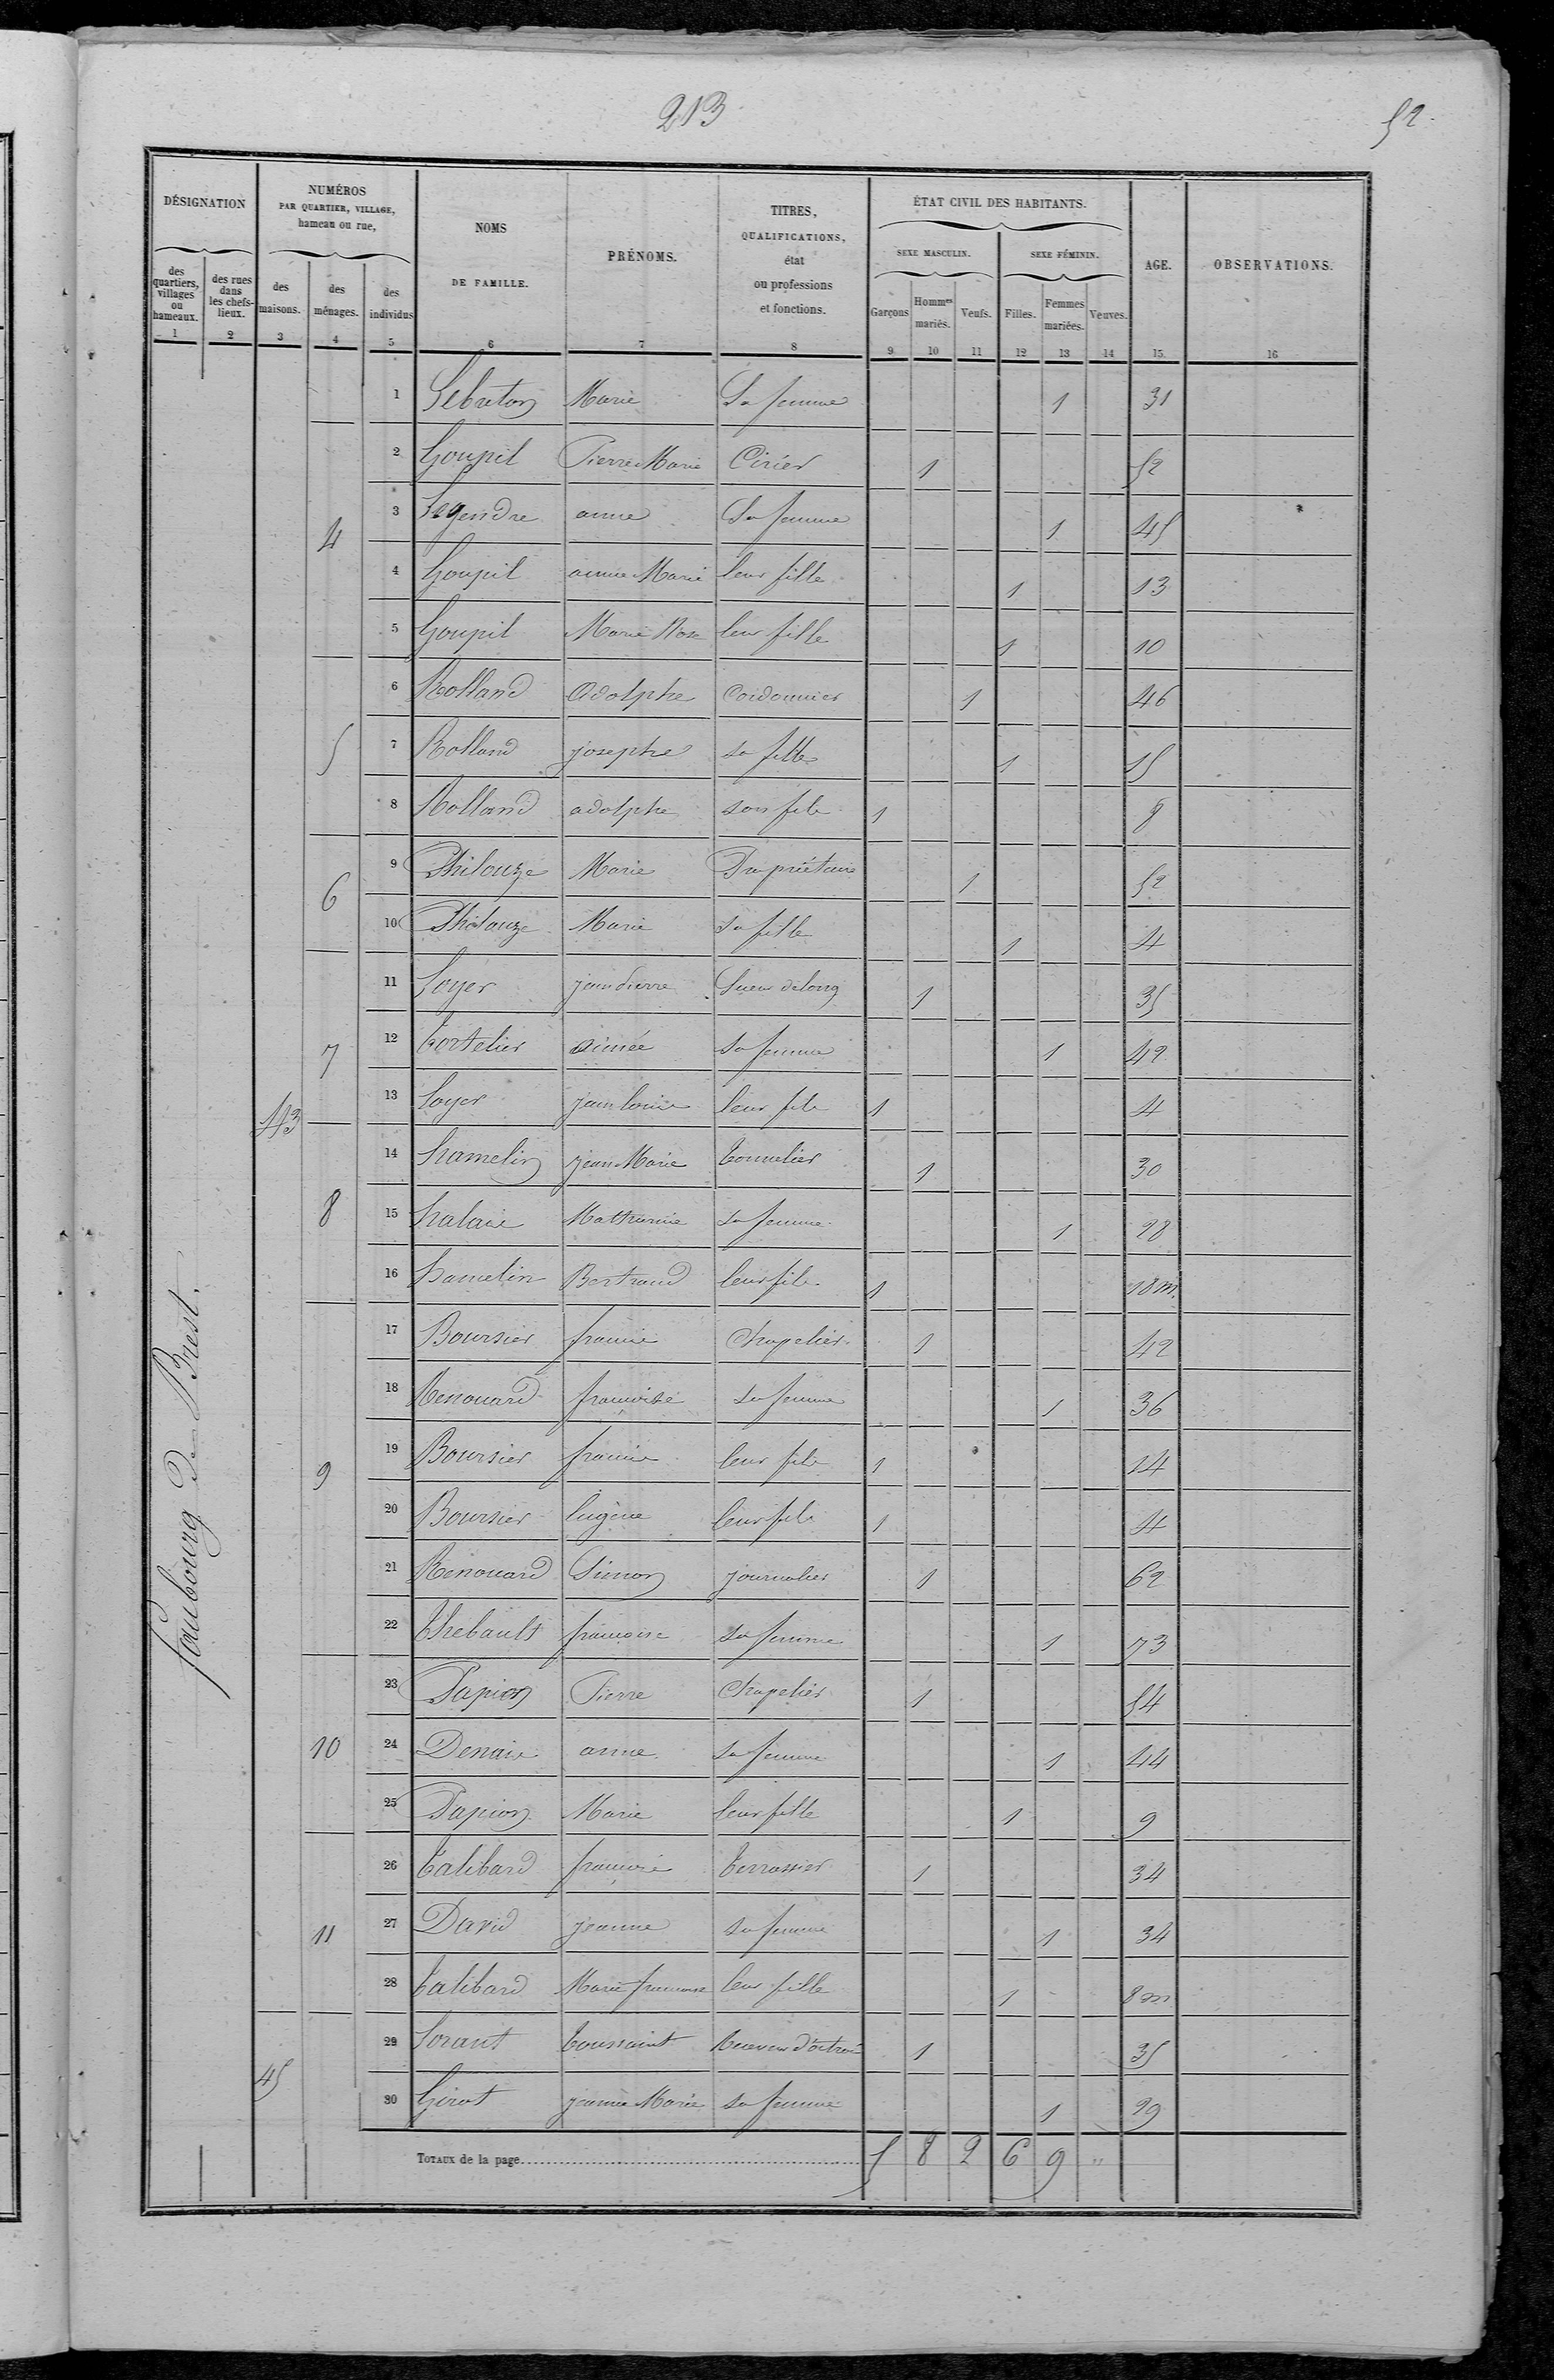 213
52.
DÉSIGNATION
NUMÉROS
PAR QUARTIER, VILLAGE,
hameau ou rue,
NOMS
DE FAMILLE.
PRÉNOMS.
TITRES,
QUALIFICATIONS,
état
ou professions
et fonctions.
ÉTAT CIVIL DES HABITANTS.
SEXE MASCULIN.
SEXE FÉMININ.
AGE.
OBSERVATIONS.
des quartiers, villages ou hameaux.
des rues dans les chefs-lieux.
des maisons.
des ménages.
des individus
Garçons
Hommes mariés.
Veufs.
Filles.
Femmes mariées.
Veuves.
1 2 3 4 5 6 7 8 9 10 11 12 13 14 15 16
Faubourg de Brest.
1 Lebreton Marie Sa femme 1 31
2 Goupil Pierre Marie Cirier 1 52
4 3 Legendre anne Sa femme 1 45
4 Goupil anne Marie leur fille 1 13
5 Goupil Marie Rose leur fille 1 10
6 Rolland Adolphe Cordonnier 1 46
5 7 Rolland josephe sa fille 1 15
8 Rolland adolphe son fils 1 8
9 Philouze Marie Propriétaire 1 52
6 10 Philouze Marie sa fille 1 4
11 Loyer jean Pierre Scieur de long 1 35
7 12 Tortelier aimée sa femme 1 42
43 13 Loyer jean louis leur fils 1 4
14 hamelin jean Marie Tonnelier 1 30
8 15 halaie Mathurine sa femme 1 28
16 hamelin Bertrand leur fils 1 18 m.
17 Boursier francis Chapelier 1 42
18 Renouard francoise sa femme 1 36
9 19 Boursier francis leur fils 1 14
20 Boursier Eugène leur fils 1 4
21 Renouard Simon journalier 1 62
22 Thebault francoise sa femme 1 73
23 Papion Pierre Chapelier 1 54
10 24 Denaie anne sa femme 1 44
25 Papion Marie leur fille 1 9
26 Talibard francois Terrassier 1 34
11 27 David jeanne sa femme 1 34
28 Talibard Marie francoise leur fille 1 8 m
29 Lorant Toussaint Receveur d'octroi 1 35
45 30 Girot jeanne Marie sa femme 1 29
TOTAUX de la page 5 8 2 6 9 "